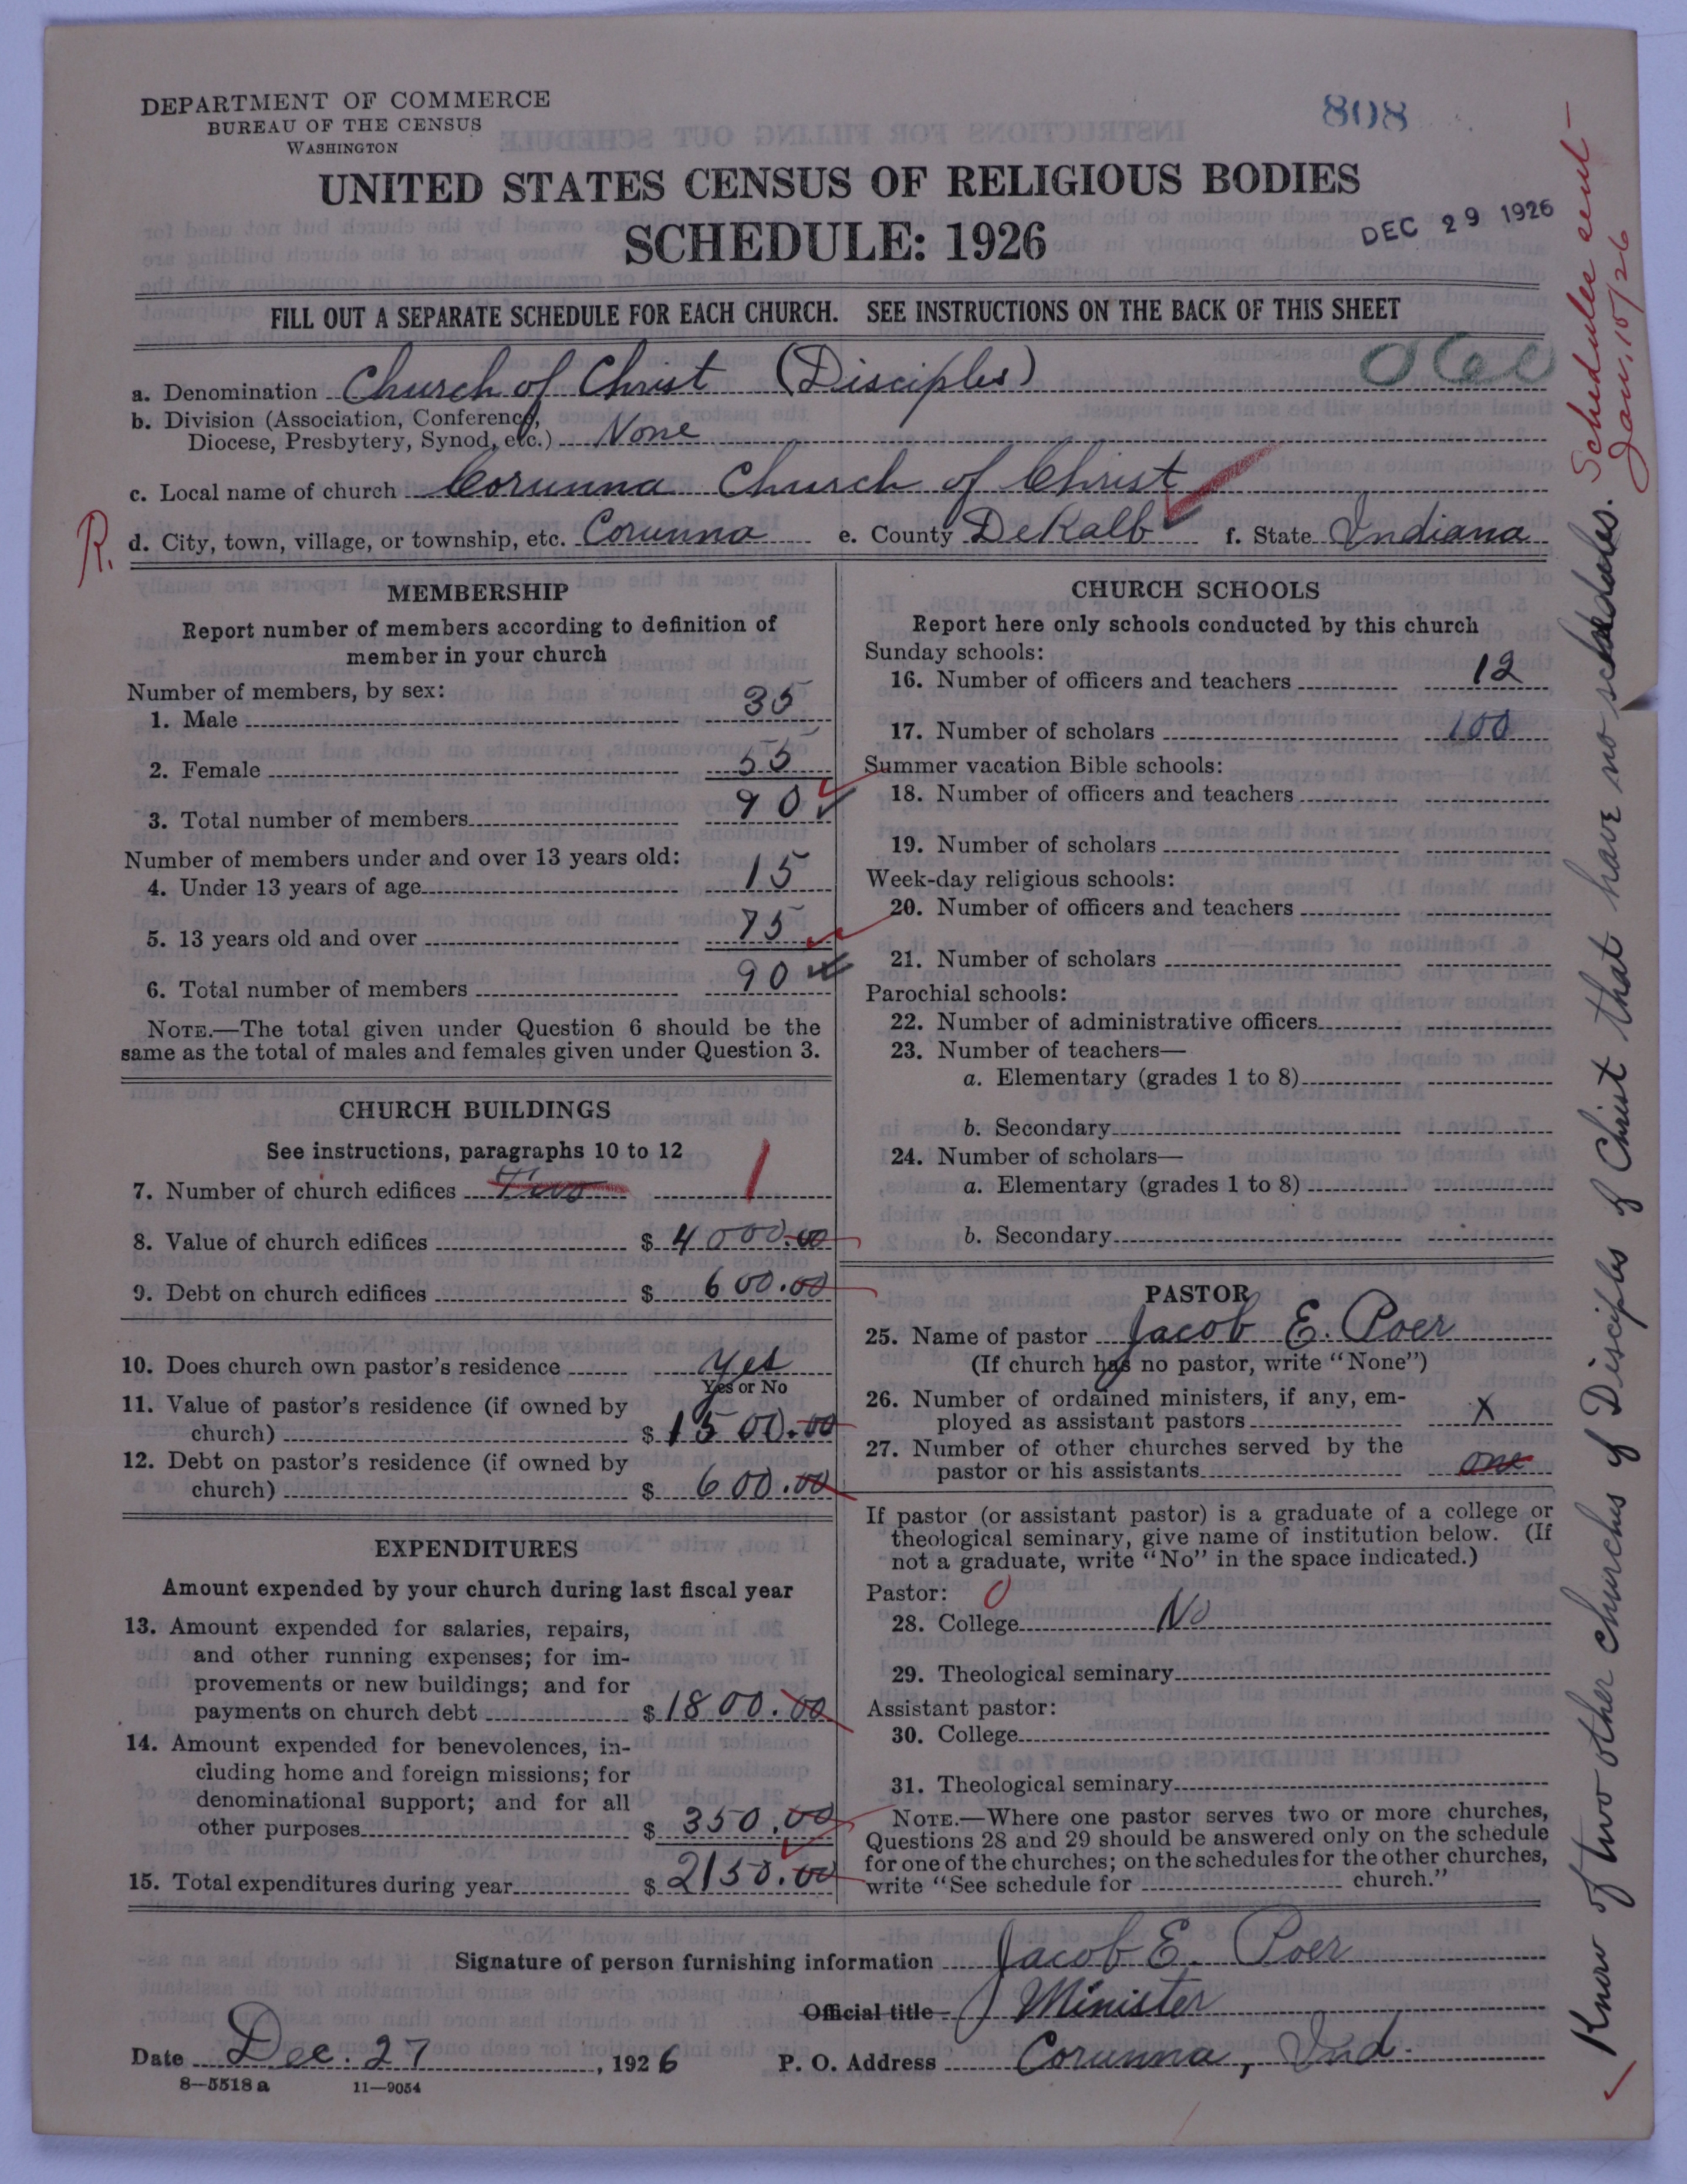 DEPARTMENT OF COMMERCE
BUREAU OF THE CENSUS
WASHINGTON
808
UNITED STATES CENSUS OF RELIGIOUS BODIES
SCHEDULE: 1926
DEC 29 1926
FILL OUT A SEPARATE SCHEDULE FOR EACH CHURCH. SEE INSTRUCTIONS ON THE BACK OF THIS SHEET
a. Denomination Church of Christ (Disciples)
b. Division (Association, Conference,
Diocese, Presbytery, Synod, etc.) None
c. Local name of church Corunna Church of Christ
R.
d. City, town, village, or township, etc. Corunna e. County DeKalb f. State Indiana
MEMBERSHIP
Report number of members according to definition of
member in your church
Number of members, by sex:
1. Male 35
2. Female 55
3. Total number of members 90
Number of members under and over 13 years old:
4. Under 13 years of age 15
5. 13 years old and over 75
6. Total number of members 90
NOTE.—The total given under Question 6 should be the
same as the total of males and females given under Question 3.
CHURCH BUILDINGS
See instructions, paragraphs 10 to 12
7. Number of church edifices Two 1
8. Value of church edifices $ 4000.00
9. Debt on church edifices $ 600.00
10. Does church own pastor's residence Yes
Yes or No
11. Value of pastor's residence (if owned by
church) $ 1500.00
12. Debt on pastor's residence (if owned by
church) $ 600.00
EXPENDITURES
Amount expended by your church during last fiscal year
13. Amount expended for salaries, repairs,
and other running expenses; for im-
provements or new buildings; and for
payments on church debt $ 1800.00
14. Amount expended for benevolences, in-
cluding home and foreign missions; for
denominational support; and for all
other purposes $ 350.00
15. Total expenditures during year $ 2150.00
CHURCH SCHOOLS
Report here only schools conducted by this church
Sunday schools:
16. Number of officers and teachers 12
17. Number of scholars 100
Summer vacation Bible schools:
18. Number of officers and teachers
19. Number of scholars
Week-day religious schools:
20. Number of officers and teachers
21. Number of scholars
Parochial schools:
22. Number of administrative officers
23. Number of teachers—
a. Elementary (grades 1 to 8)
b. Secondary
24. Number of scholars—
a. Elementary (grades 1 to 8)
b. Secondary
PASTOR
25. Name of pastor Jacob E. Poer
(If church has no pastor, write "None")
26. Number of ordained ministers, if any, em-
ployed as assistant pastors X
27. Number of other churches served by the
pastor or his assistants one
If pastor (or assistant pastor) is a graduate of a college or
theological seminary, give name of institution below. (If
not a graduate, write "No" in the space indicated.)
Pastor: 0
28. College No
29. Theological seminary
Assistant pastor:
30. College
31. Theological seminary
NOTE.—Where one pastor serves two or more churches,
Questions 28 and 29 should be answered only on the schedule
for one of the churches; on the schedules for the other churches,
write "See schedule for church."
Signature of person furnishing information Jacob E. Poer
Official title Minister
Date Dec. 27, 1926 P. O. Address Corunna, Ind.
8-5518a 11-9054
Know of two other churches of Disciples of Christ that have no schedules.
Schedules sent -
Jan, 10/26